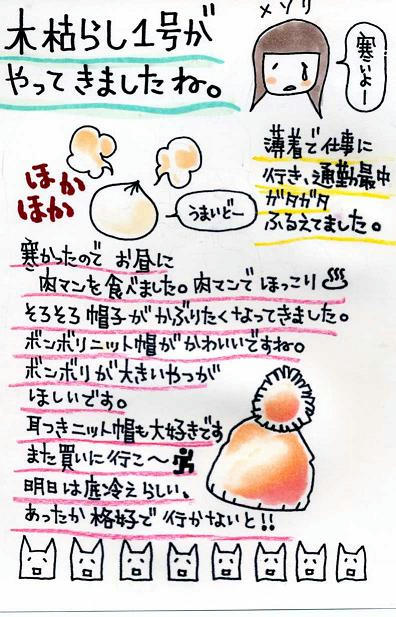 木枯らし1号が
やってきましたね。
メソリ
寒いよー
薄着で仕事に
行き、通勤最中
ガタガタ
ふるえてました。
ほか
ほか
うまいどー
寒かったので お昼に
肉マンを食べました。肉マンで ほっこり♨
そろそろ 帽子が かぶりたくなってきました。
ボンボリニット帽が かわいいですね。
ボンボリが大きいやつが
ほしいです。
耳つきニット帽も大好きです
また買いに行こ〜
明日は底冷えらしい、
あったか格好で 行かないと!!